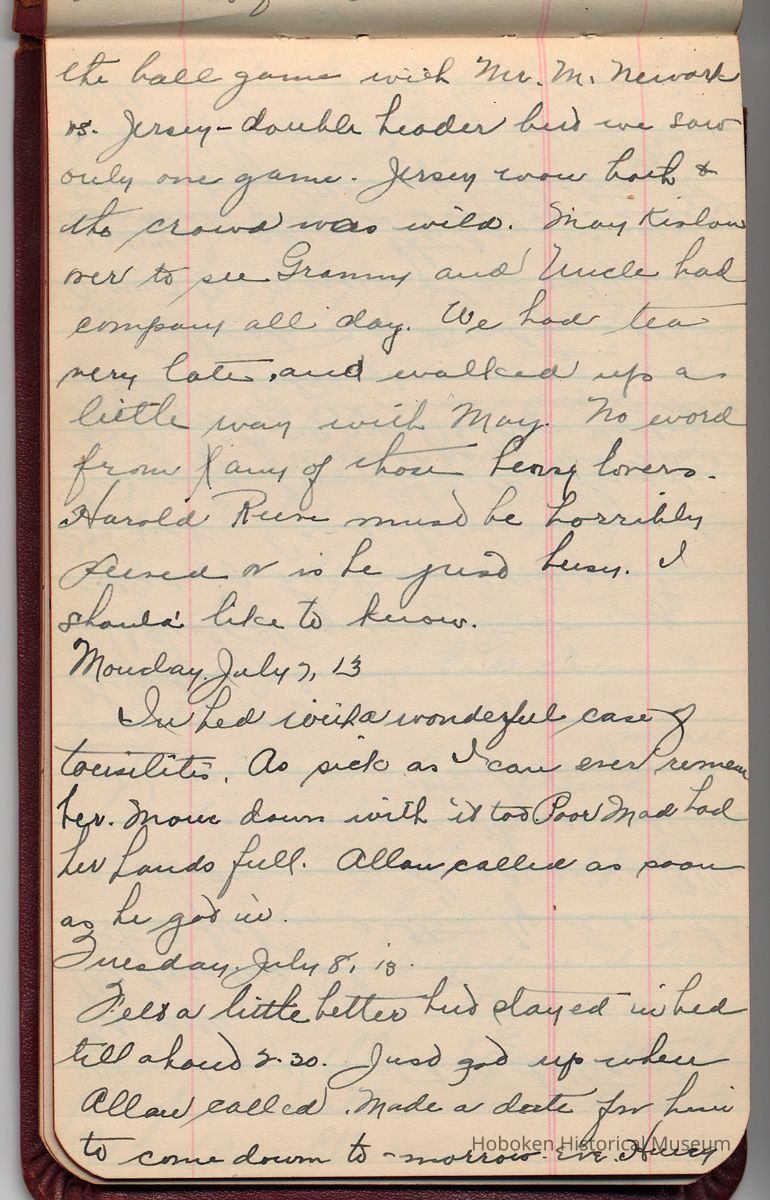 the ball game with Mr. M. Newark
vs. Jersey - double header but we saw
only one game. Jersey won both &
the crowd was wild. May Kislow
over to see Granny and Uncle had
company all day. We had tea
very late, and walked up a
little way with May. No word
from any of those lovers.
Harold must be horribly
or is he just busy. I
should like to know.
Monday. July 7, 13
In bed with a wonderful case of
tonsilitis. As sick as I can ever remem
ber. down with it too Poor Mad had
her hands full. Allan called as soon
as he got in.
Tuesday. July 8, 13.
Felt a little better but stayed in bed
till about 2.30. Just got up when
Allan called. Made a date for him
to come down to-morrow eve.
Hoboken Historical Museum